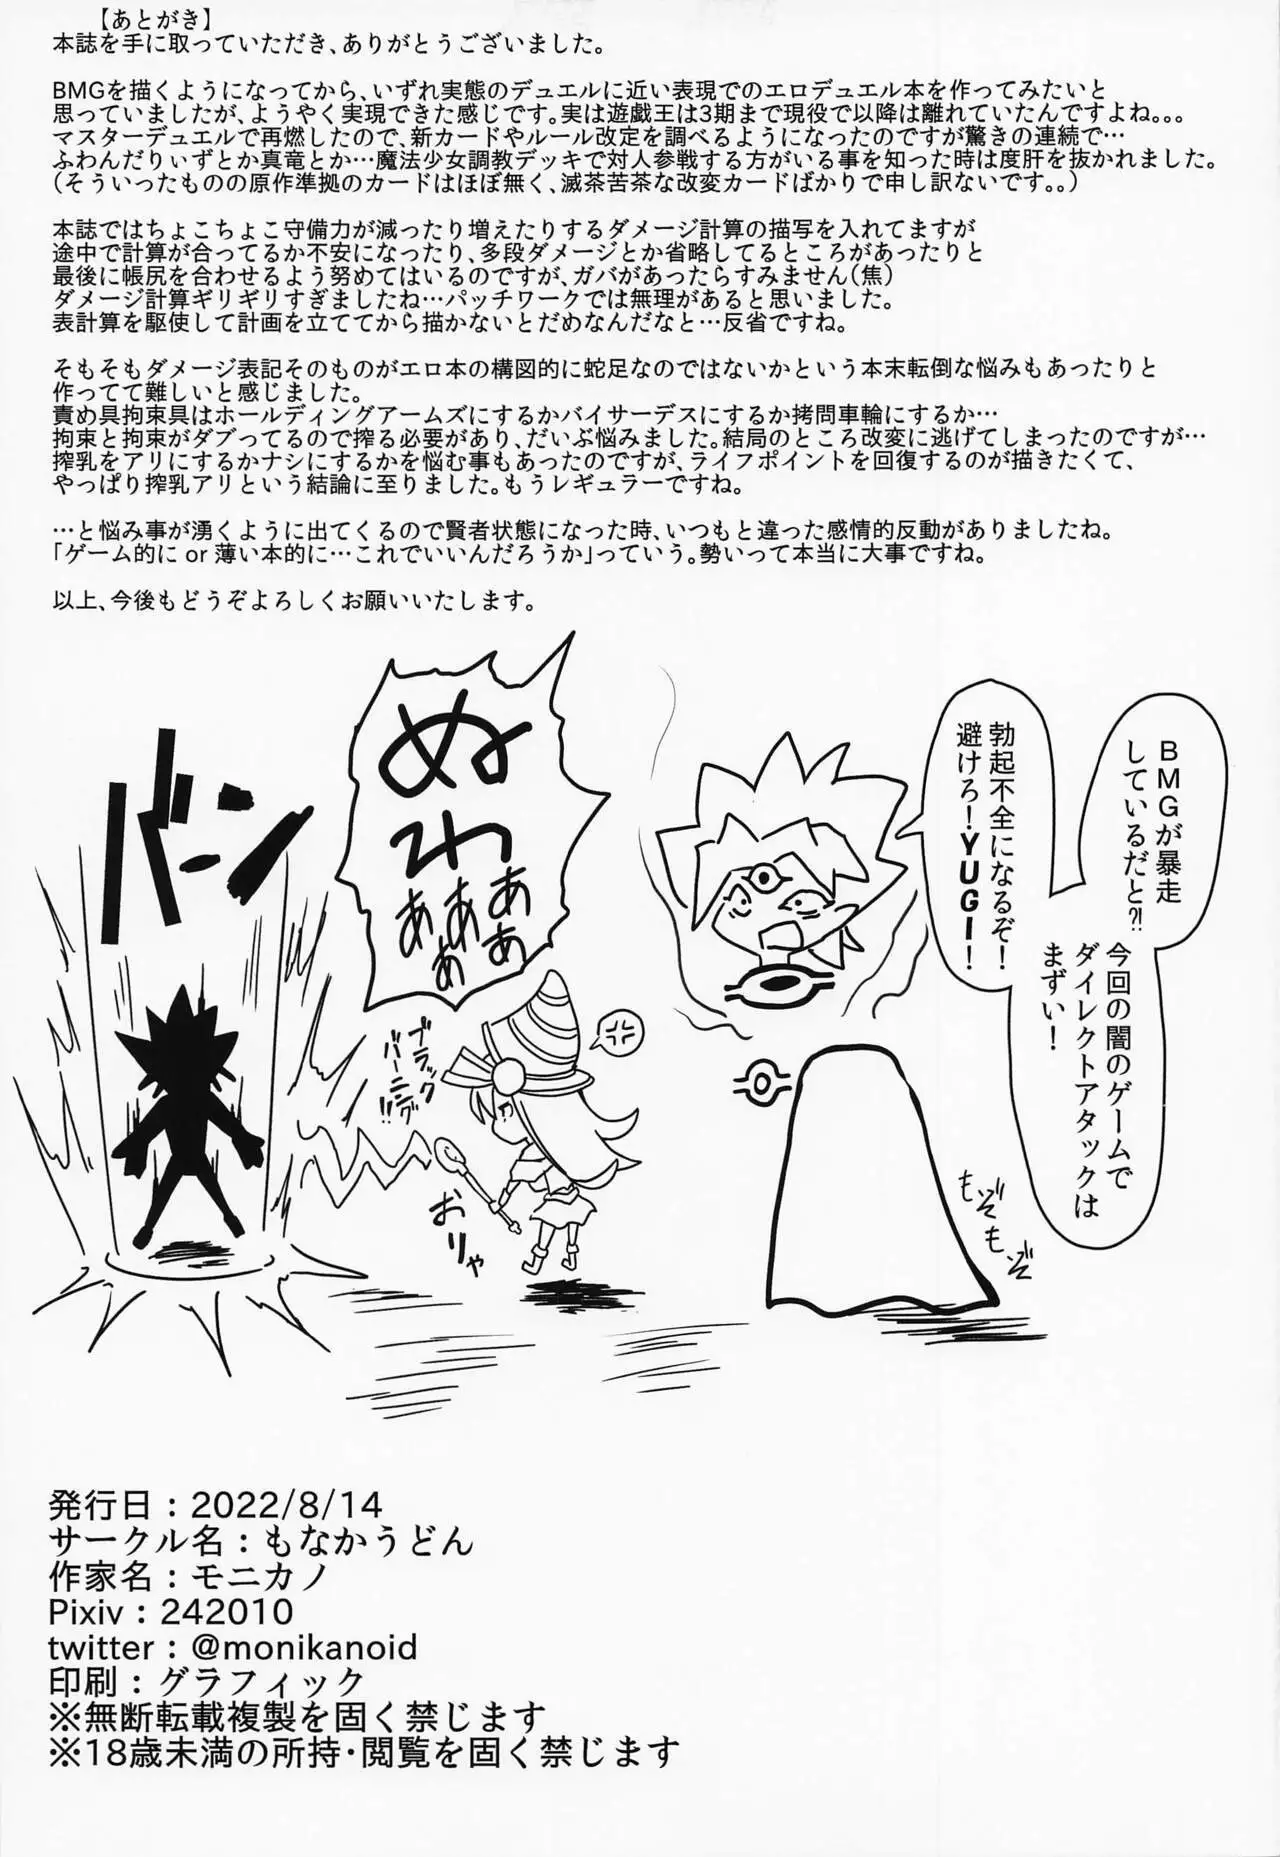 【あとがき】
本誌を手に取っていただき、ありがとうございました。
BMGを描くようになってから、いずれ実態のデュエルに近い表現でのエロデュエル本を作ってみたいと
思っていましたが、ようやく実現できた感じです。実は遊戯王は3期まで現役で以降は離れていたんですよね。。。
マスターデュエルで再燃したので、新カードやルール改定を調べるようになったのですが驚きの連続で…
ふわんだりぃずとか真竜とか…魔法少女調教デッキで対人参戦する方がいる事を知った時は度肝を抜かれました。
(そういったものの原作準拠のカードはほぼ無く、滅茶苦茶な改変カードばかりで申し訳ないです。。)
本誌ではちょこちょこ守備力が減ったり増えたりするダメージ計算の描写を入れてますが
途中で計算が合ってるか不安になったり、多段ダメージとか省略してるところがあったりと
最後に帳尻を合わせるよう努めてはいるのですが、ガバがあったらすみません(焦)
ダメージ計算ギリギリすぎましたね…パッチワークでは無理があると思いました。
表計算を駆使して計画を立ててから描かないとだめなんだなと…反省ですね。
そもそもダメージ表記そのものがエロ本の構図的に蛇足なのではないかという本末転倒な悩みもあったりと
作ってて難しいと感じました。
責め具拘束具はホールディングアームズにするかバイサーデスにするか拷問車輪にするか…
拘束と拘束がダブってるので搾る必要があり、だいぶ悩みました。結局のところ改変に逃げてしまったのですが…
搾乳をアリにするかナシにするかを悩む事もあったのですが、ライフポイントを回復するのが描きたくて、
やっぱり搾乳アリという結論に至りました。もうレギュラーですね。
…と悩み事が湧くように出てくるので賢者状態になった時、いつもと違った感情的反動がありましたね。
「ゲーム的に or 薄い本的に…これでいいんだろうか」っていう。勢いって本当に大事ですね。
以上、今後もどうぞよろしくお願いいたします。
BMGが暴走
しているだと?!
今回の闇のゲームで
ダイレクトアタックは
まずい！
勃起不全になるぞ！
避けろ！YUGI！
ぬ
わ
ああ
ああ
ああ
バーン
ブラック
バーニング!!
おりゃ
もぞ
もぞ
発行日：2022/8/14
サークル名：もなかうどん
作家名：モニカノ
Pixiv：242010
twitter：@monikanoid
印刷：グラフィック
※無断転載複製を固く禁じます
※18歳未満の所持・閲覧を固く禁じます